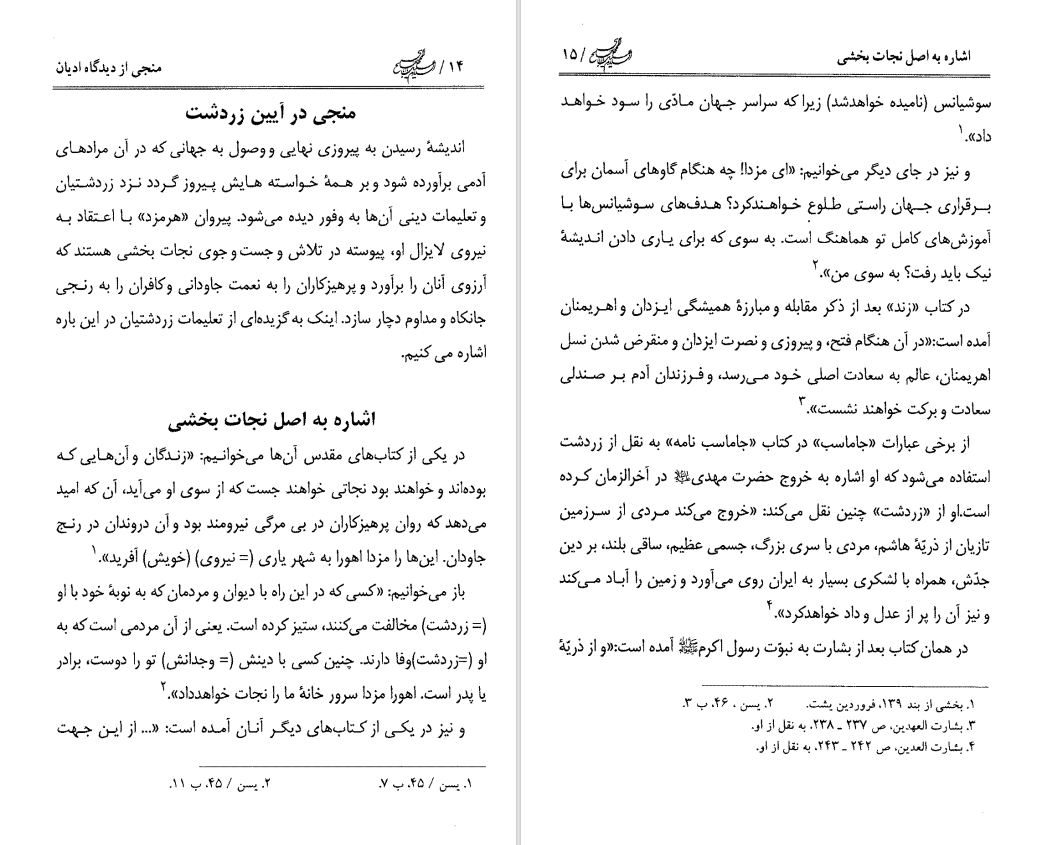 ۱۴ / منجی از دیدگاه ادیان
منجی در آیین زردشت
اندیشهٔ رسیدن به پیروزی نهایی و وصول به جهانی که در آن مرادهای
آدمی برآورده شود و بر همهٔ خواسته هایش پیروز گردد نزد زردشتیان
و تعلیمات دینی آن‌ها به وفور دیده می‌شود. پیروان «هرمزد» با اعتقاد به
نیروی لایزال او، پیوسته در تلاش و جست و جوی نجات بخشی هستند که
آرزوی آنان را برآورد و پرهیزکاران را به نعمت جاودانی و کافران را به رنجی
جانکاه و مداوم دچار سازد. اینک به گزیده‌ای از تعلیمات زردشتیان در این باره
اشاره می کنیم.
اشاره به اصل نجات بخشی
در یکی از کتاب‌های مقدس آن‌ها می‌خوانیم: «زندگان و آن‌هایی که
بوده‌اند و خواهند بود نجاتی خواهند جست که از سوی او می‌آید، آن که امید
می‌دهد که روان پرهیزکاران در بی مرگی نیرومند بود و آن دروندان در رنج
جاودان. این‌ها را مزدا اهورا به شهر یاری (= نیروی) (خویش) آفرید».۱
باز می‌خوانیم: «کسی که در این راه با دیوان و مردمان که به نوبهٔ خود با او
(= زردشت) مخالفت می‌کنند، ستیز کرده است. یعنی از آن مردمی است که به
او (=زردشت)وفا دارند. چنین کسی با دینش (= وجدانش) تو را دوست، برادر
یا پدر است. اهورا مزدا سرور خانهٔ ما را نجات خواهدداد».۲
و نیز در یکی از کتاب‌های دیگر آنان آمده است: «... از این جهت
۱. یسن / ۴۵، ب ۷. ۲. یسن / ۴۵، ب ۱۱.
اشاره به اصل نجات بخشی / ۱۵
سوشیانس (نامیده خواهدشد) زیرا که سراسر جهان مادّی را سود خواهد
داد».۱
و نیز در جای دیگر می‌خوانیم: «ای مزدا! چه هنگام گاوهای آسمان برای
برقراری جهان راستی طلوع خواهندکرد؟ هدف‌های سوشیانس‌ها با
آموزش‌های کامل تو هماهنگ است. به سوی که برای یاری دادن اندیشهٔ
نیک باید رفت؟ به سوی من».۲
در کتاب «زند» بعد از ذکر مقابله و مبارزهٔ همیشگی ایزدان و اهریمنان
آمده است:«در آن هنگام فتح، و پیروزی و نصرت ایزدان و منقرض شدن نسل
اهریمنان، عالم به سعادت اصلی خود می‌رسد، و فرزندان آدم بر صندلی
سعادت و برکت خواهند نشست».۳
از برخی عبارات «جاماسب» در کتاب «جاماسب نامه» به نقل از زردشت
استفاده می‌شود که او اشاره به خروج حضرت مهدی در آخرالزمان کرده
است.او از «زردشت» چنین نقل می‌کند: «خروج می‌کند مردی از سرزمین
تازیان از ذریّهٔ هاشم، مردی با سری بزرگ، جسمی عظیم، ساقی بلند، بر دین
جدّش، همراه با لشکری بسیار به ایران روی می‌آورد و زمین را آباد می‌کند
و نیز آن را پر از عدل و داد خواهدکرد».۴
در همان کتاب بعد از بشارت به نبوّت رسول اکرمﷺ آمده است:«و از ذریّهٔ
۱. بخشی از بند ۱۳۹، فروردین یشت. ۲. یسن ، ۴۶، ب ۳.
۳. بشارت العهدین، ص ۲۳۷ ـ ۲۳۸، به نقل از او.
۴. بشارت العدین، ص ۲۴۲ ـ ۲۴۳، به نقل از او.